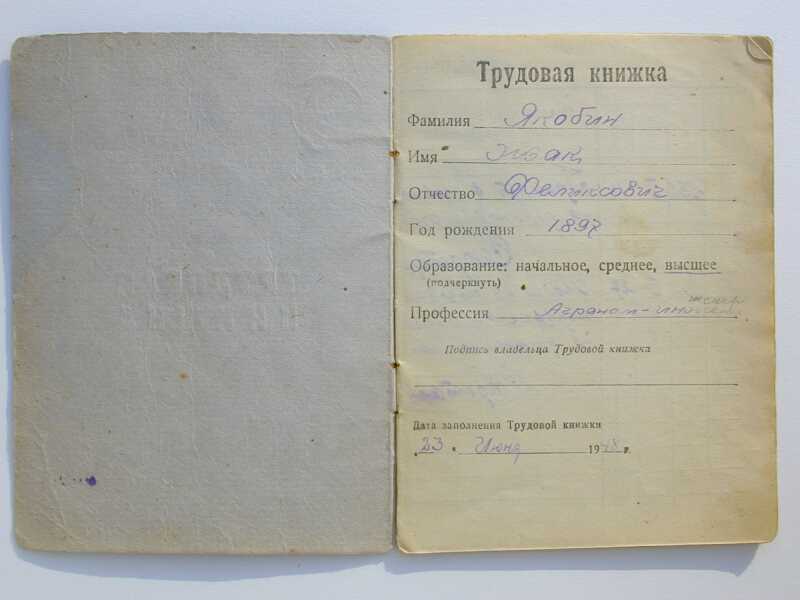 Трудовая книжка
Фамилия Якобин
Имя Исак
Отчество Феликсович
Год рождения 1897
Образование: начальное, среднее, высшее
(подчеркнуть)
Профессия Агроном-инженер
Подпись владельца Трудовой книжки
Дата заполнения Трудовой книжки
"23" Июня 1948 г.